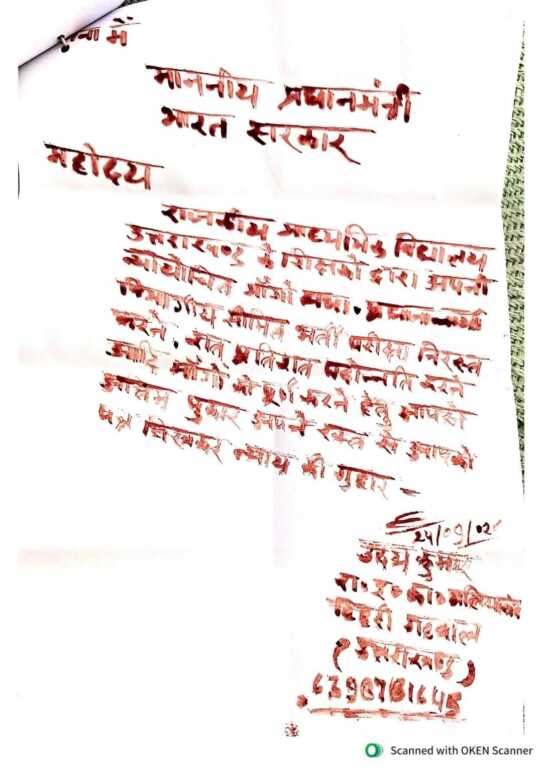 सेवा में
माननीय प्रधानमंत्री
भारत सरकार
महोदय
राजकीय माध्यमिक विद्यालय
उत्तराखण्ड के शिक्षकों द्वारा अपनी
न्यायोचित माँगों यथा. प्रधानाचार्य
विभागीय सीमित भर्ती परीक्षा निरस्त
करने. शत प्रतिशत पदोन्नति करने
आदि माँगों को पूर्ण करने हेतु आपसे
अन्तिम पुकार अपने रक्त से आपको
पत्र लिखकर न्याय की गुहार -
24/09/02
उदय कुमार
रा० इ० का०
टिहरी गढवाल
(उत्तराखण्ड)
Scanned with OKEN Scanner